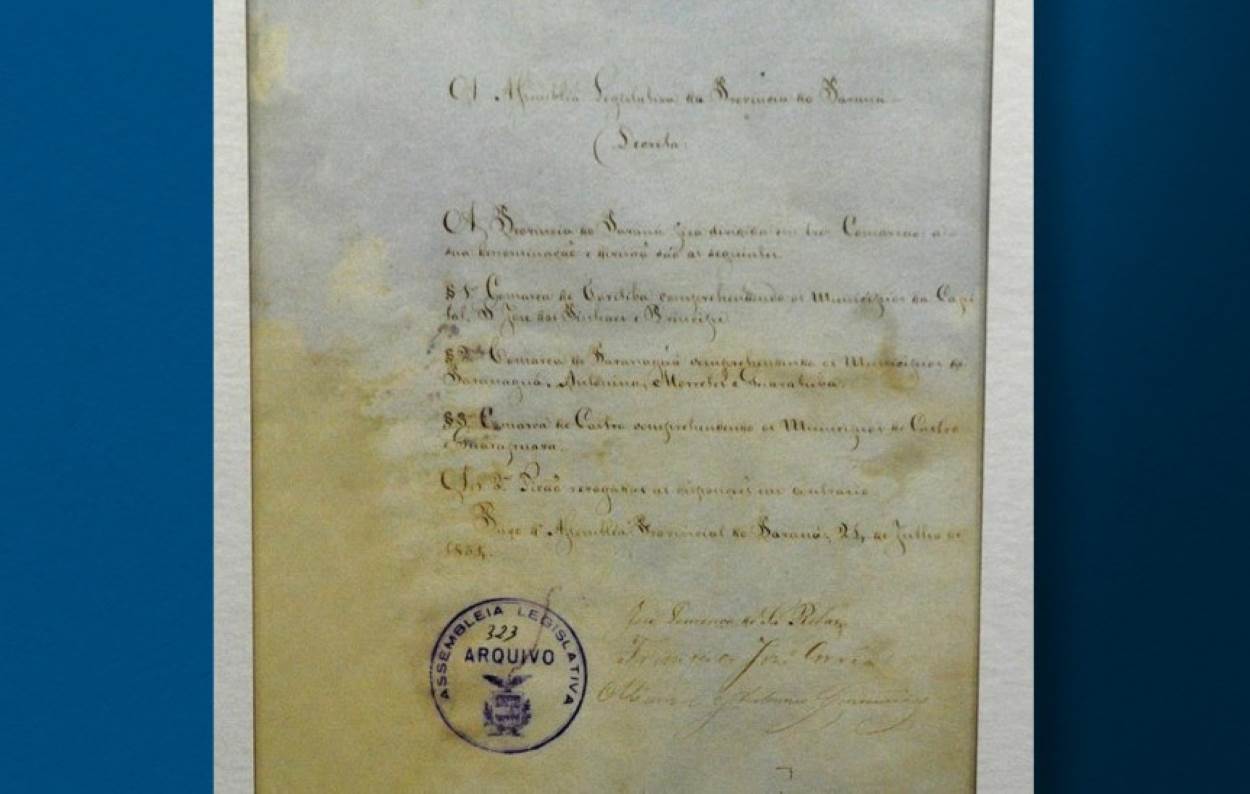 A Assembléa Legislativa da Provincia do Paraná
Decreta:
A Provincia do Paraná fica dividida em tres Comarcas: a
sua denominação e divisão são as seguintes
§ 1º Comarca de Coritiba comprehendendo os Municipios da Capi
tal, S. José dos Pinhaes e Principe
§ 2º Comarca de Paranaguá comprehendendo os Municipios de
Paranaguá, Antonina, Morretes e Guaratuba.
§ 3º Comarca de Castro comprehendendo os Municipios de Castro
e Guarapuava.
Art 2º Ficão revogadas as disposições em contrario
Paço d'Assembléa Provincial do Paraná, 24 de Julho de
1854.
ASSEMBLEIA LEGISLATIVA
323
ARQUIVO
José Lourenço de Sá Ribas
Francisco José Correia
Antonio